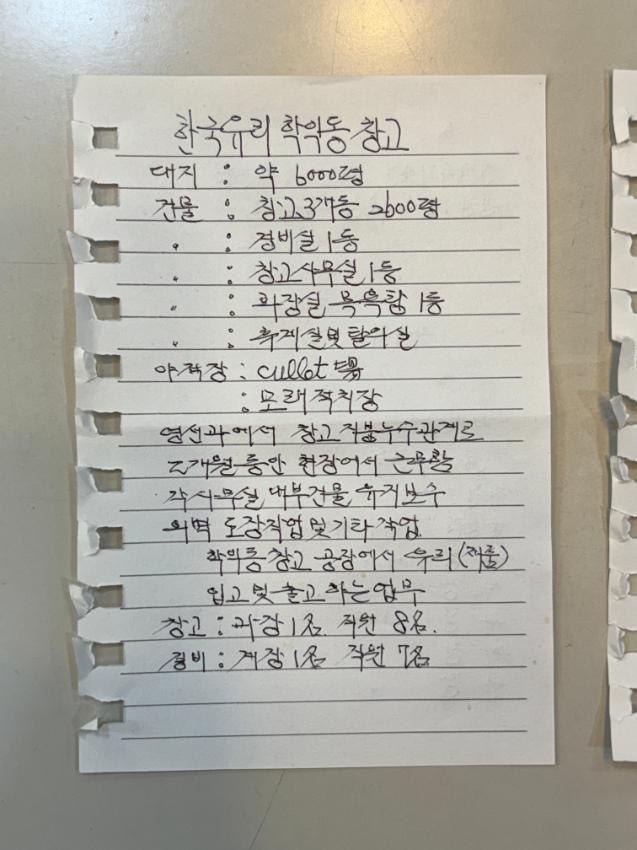 한국유리 학익동 창고
대지 : 약 6000평
건물 : 창고 3개동 2600평
〃 : 경비실 1동
〃 : 창고사무실 1동
〃 : 화장실 목욕탕 1동
〃 : 휴게실 및 탈의실
야적장 : cullet 場
: 모래적치장
영선과에서 창고 지붕누수관계로
2개월 동안 현장에서 근무함
각 사무실 내부건물 유지보수
외벽 도장작업 및 기타 작업
학익동 창고 공장에서 유리(제품)
입고 및 출고하는 업무
창고 : 과장 1名 직원 8名.
경비 : 계장 1名 직원 7名